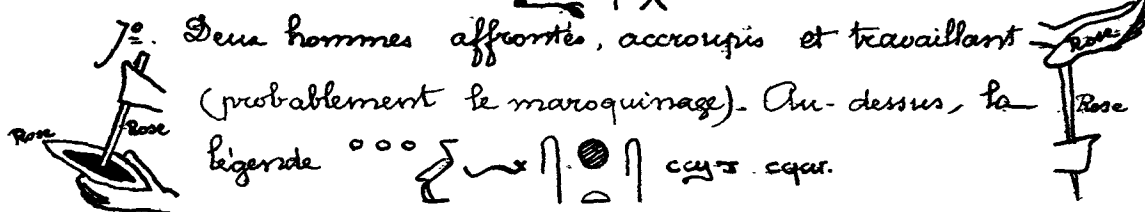 7º. Deux hommes affrontés, accroupis et travaillant
(probablement le maroquinage). Au-dessus, la
légende
Rose
Rose
Rose
Rose